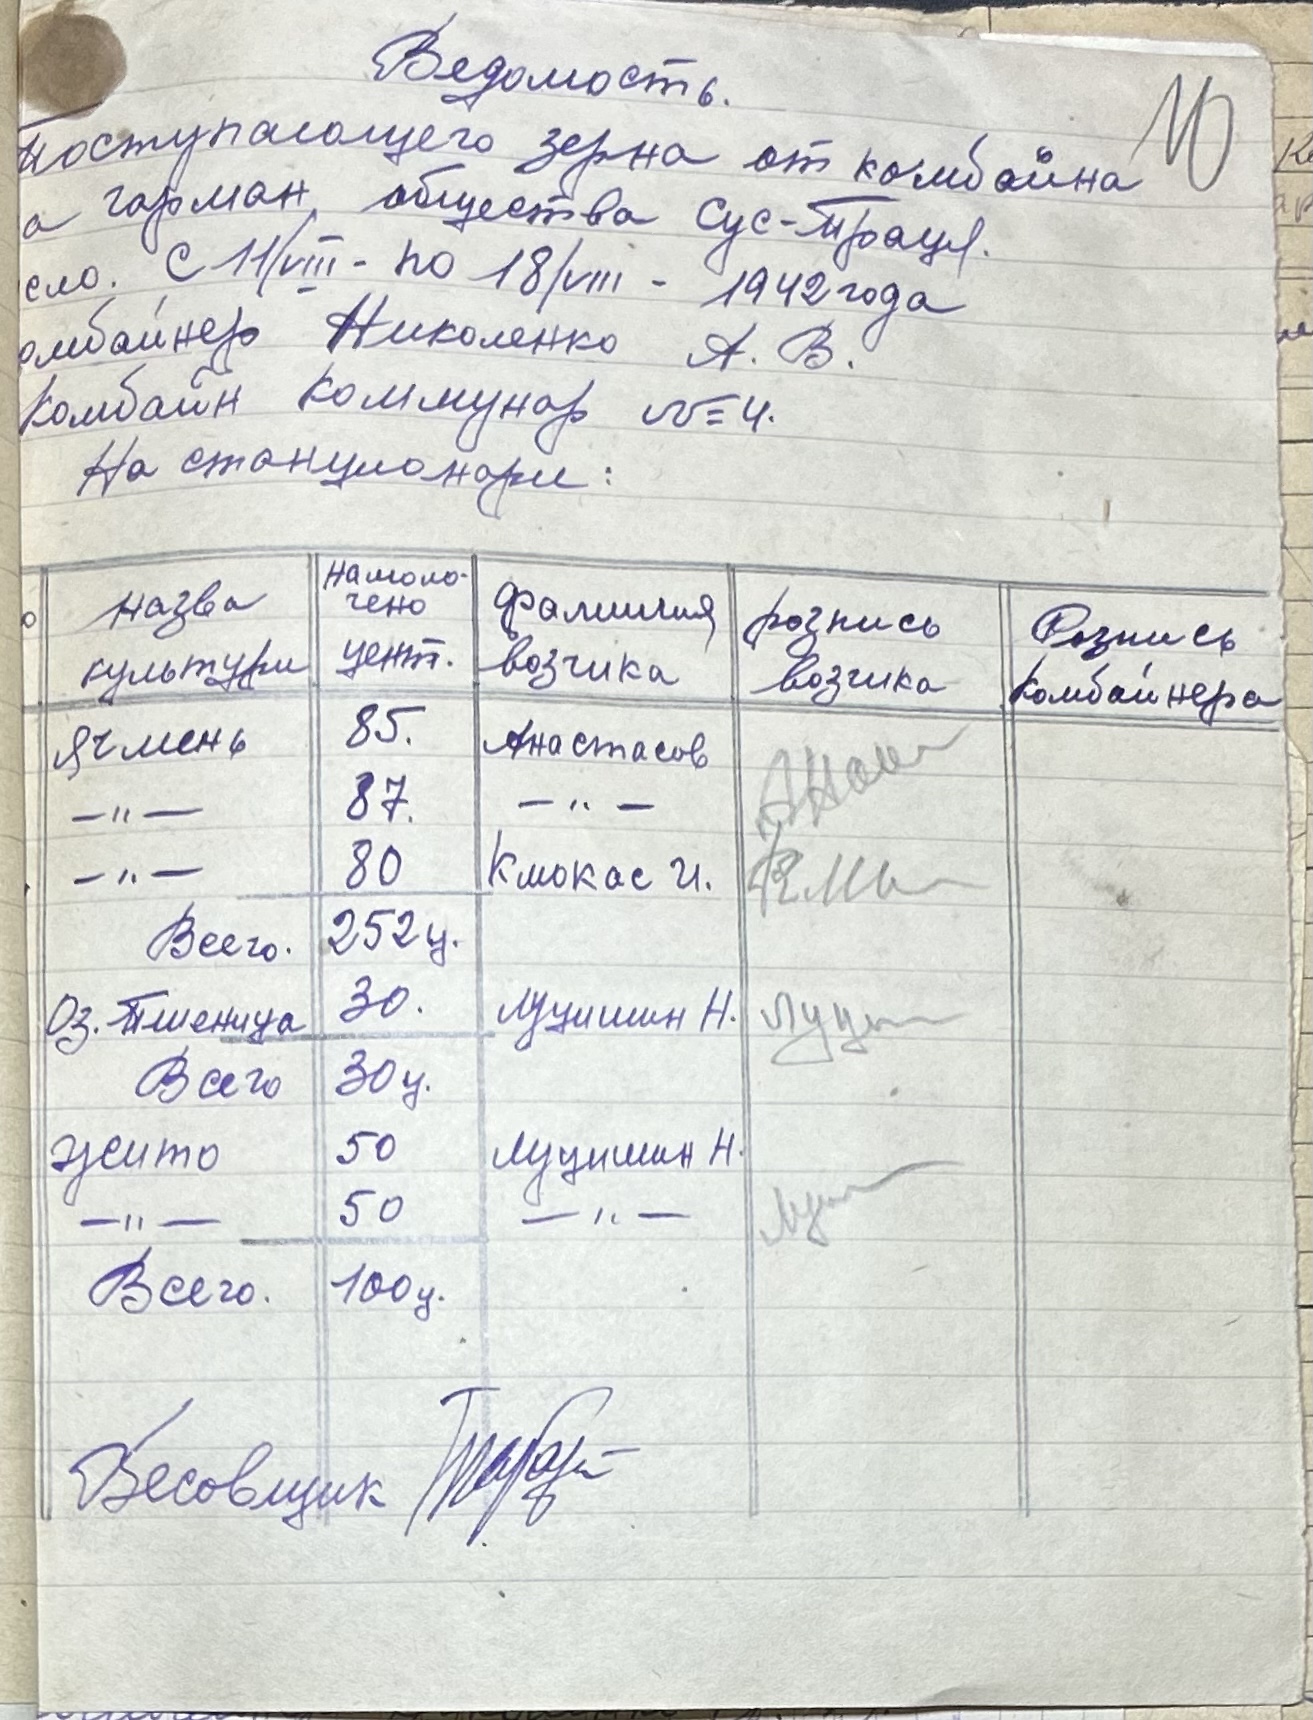 Ведомость.
10
Поступающего зерна от комбайна
а гарман общества Сус-Праця.
сло. С 11/VIII - по 18/VIII - 1942 года
омбайнер Николенко А. В.
Комбайн Коммунар № 4.
На станционари:
о назва культури намоло-чено цент. фамилия возчика розпись возчика Розпись комбайнера
Ячмень 85. Анастасов
—"— 87. —"—
—"— 80 Кмокас И.
Всего. 252 ц.
Оз. Пшеница 30. Луцишин Н.
Всего 30 ц.
жито 50 Луцишин Н.
—"— 50 —"—
Всего. 100 ц.
Весовщик